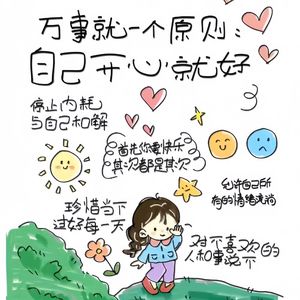 万事就一个原则:
自己开心就好
停止内耗
与自己和解
首先你要快乐
其次都是其次
允许自己所
有的情绪流淌
珍惜当下
过好每一天
对不喜欢的
人和事说不